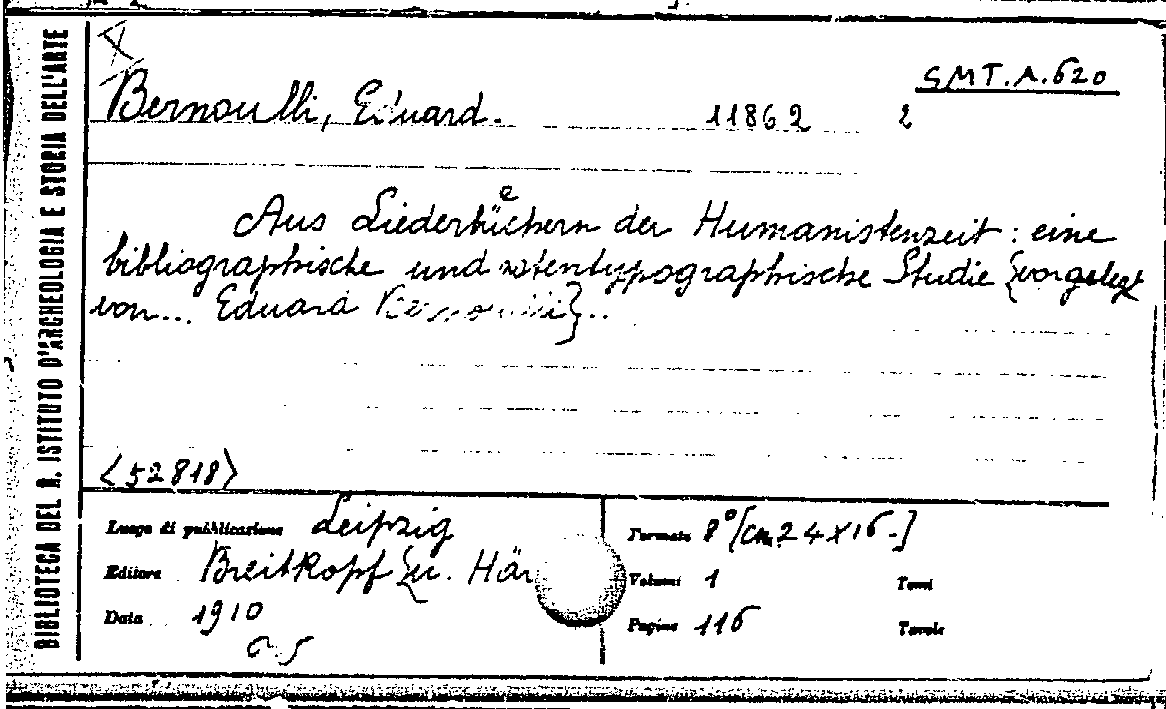 BIBLIOTECA DEL R. ISTITUTO D'ARCHEOLOGIA E STORIA DELL'ARTE
SMT.A.620
Bernoulli, Eduard. 11862 2
Aus Liederbüchern der Humanistenzeit: eine
bibliographische und notentypographische Studie {vorgelegt
von... Eduard Bernoulli}..
<52818>
Luogo di pubblicazione Leipzig
Editore Breitkopf {u. Här
Data 1910
Formato 8° [cm. 24 x 16.]
Volumi 1 Tomi
Pagine 116 Tavole